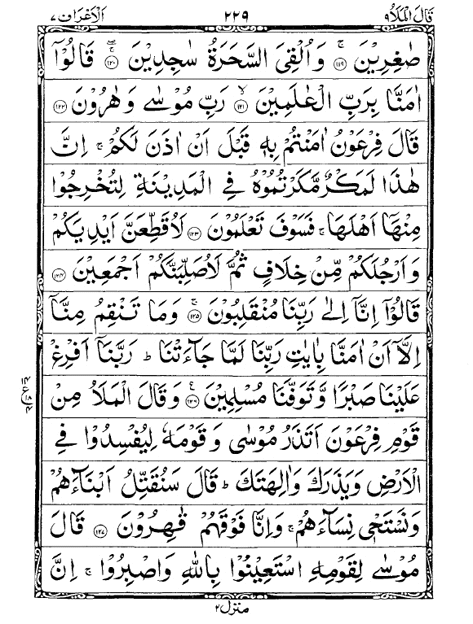 قَالَ الْمَلَأُ ۹ ۲۲۹ اَلْاَعْرَاف ۷
صٰغِرِيْنَ ۚ ﴿۱۱۹﴾ وَاُلْقِيَ السَّحَرَةُ سٰجِدِيْنَ ۚ ﴿۱۲۰﴾ قَالُوْٓا
اٰمَنَّا بِرَبِّ الْعٰلَمِيْنَ ۙ ﴿۱۲۱﴾ رَبِّ مُوْسٰى وَهٰرُوْنَ ﴿۱۲۲﴾
قَالَ فِرْعَوْنُ اٰمَنْتُمْ بِهٖ قَبْلَ اَنْ اٰذَنَ لَكُمْ ۚ اِنَّ
هٰذَا لَمَكْرٌ مَّكَرْتُمُوْهُ فِى الْمَدِيْنَةِ لِتُخْرِجُوْا
مِنْهَآ اَهْلَهَا ۚ فَسَوْفَ تَعْلَمُوْنَ ﴿۱۲۳﴾ لَاُقَطِّعَنَّ اَيْدِيَكُمْ
وَاَرْجُلَكُمْ مِّنْ خِلَافٍ ثُمَّ لَاُصَلِّبَنَّكُمْ اَجْمَعِيْنَ ﴿۱۲۴﴾
قَالُوْٓا اِنَّآ اِلٰى رَبِّنَا مُنْقَلِبُوْنَ ۚ ﴿۱۲۵﴾ وَمَا تَنْقِمُ مِنَّآ
اِلَّآ اَنْ اٰمَنَّا بِاٰيٰتِ رَبِّنَا لَمَّا جَآءَتْنَا ؕ رَبَّنَآ اَفْرِغْ
عَلَيْنَا صَبْرًا وَّتَوَفَّنَا مُسْلِمِيْنَ ۧ ﴿۱۲۶﴾ وَقَالَ الْمَلَاُ مِنْ
قَوْمِ فِرْعَوْنَ اَتَذَرُ مُوْسٰى وَقَوْمَهٗ لِيُفْسِدُوْا فِى
الْاَرْضِ وَيَذَرَكَ وَاٰلِهَتَكَ ؕ قَالَ سَنُقَتِّلُ اَبْنَآءَهُمْ
وَنَسْتَحْىٖ نِسَآءَهُمْ ۚ وَاِنَّا فَوْقَهُمْ قٰهِرُوْنَ ﴿۱۲۷﴾ قَالَ
مُوْسٰى لِقَوْمِهِ اسْتَعِيْنُوْا بِاللّٰهِ وَاصْبِرُوْا ۚ اِنَّ
منزل ۲